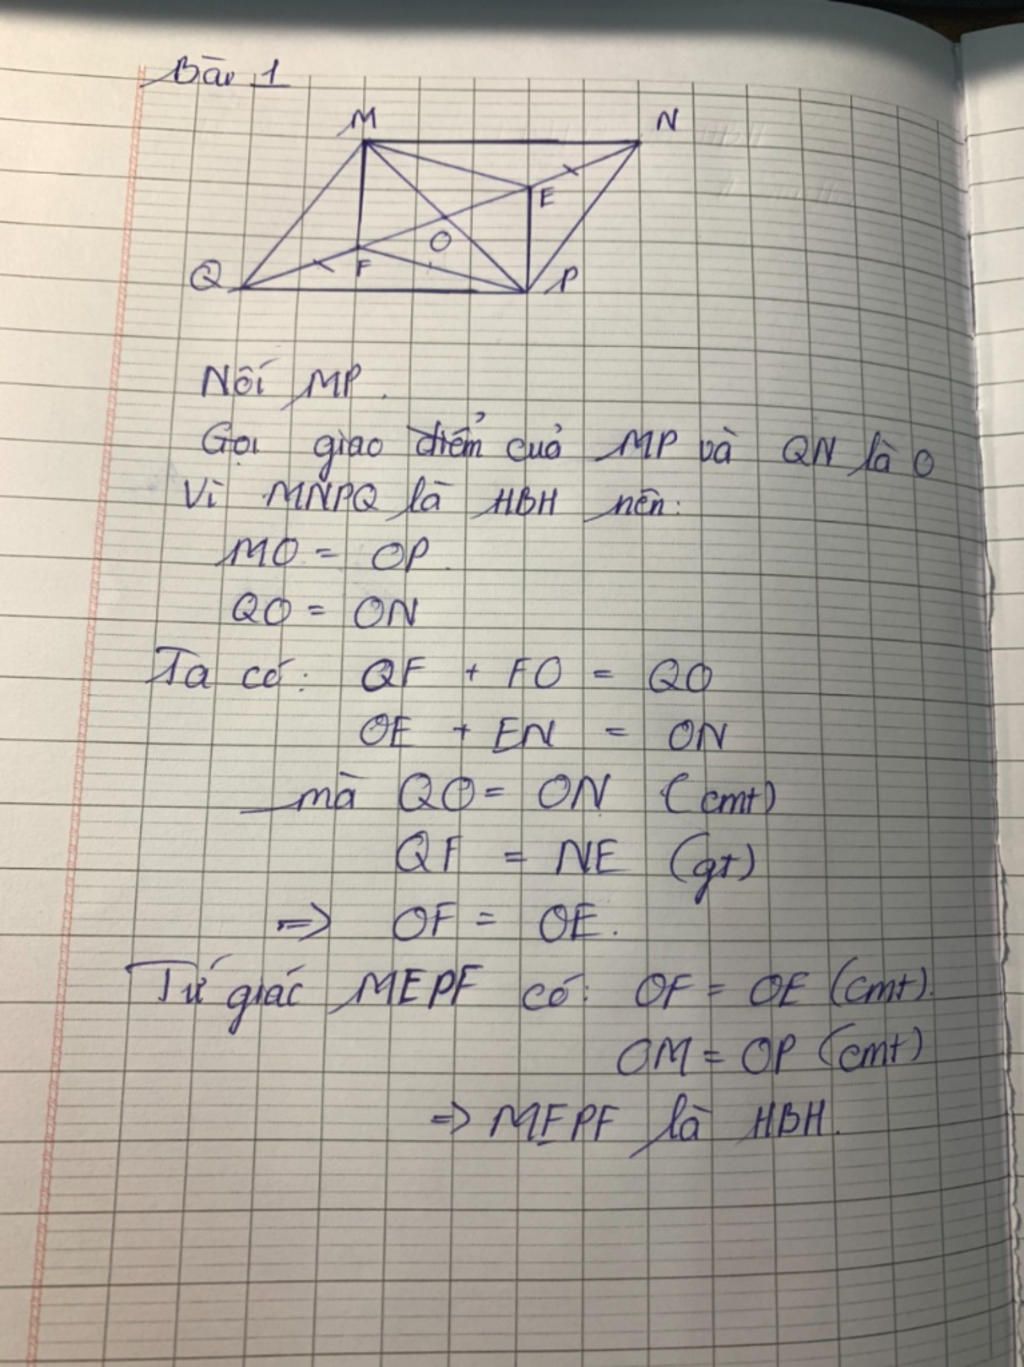 Bài 1
M N
E
O
Q F P
Nối MP.
Gọi giao điểm của MP và QN là O
Vì MNPQ là HBH nên:
MO = OP.
QO = ON
Ta có: QF + FO = QO
OE + EN = ON
mà QO = ON (cmt)
QF = NE (gt)
=> OF = OE.
Tứ giác MEPF có: OF = OE (cmt).
OM = OP (cmt)
=> MEPF là HBH.